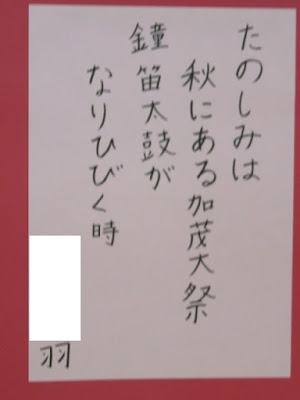 たのしみは
秋にある加茂大祭
鐘笛太鼓が
なりひびく時
羽